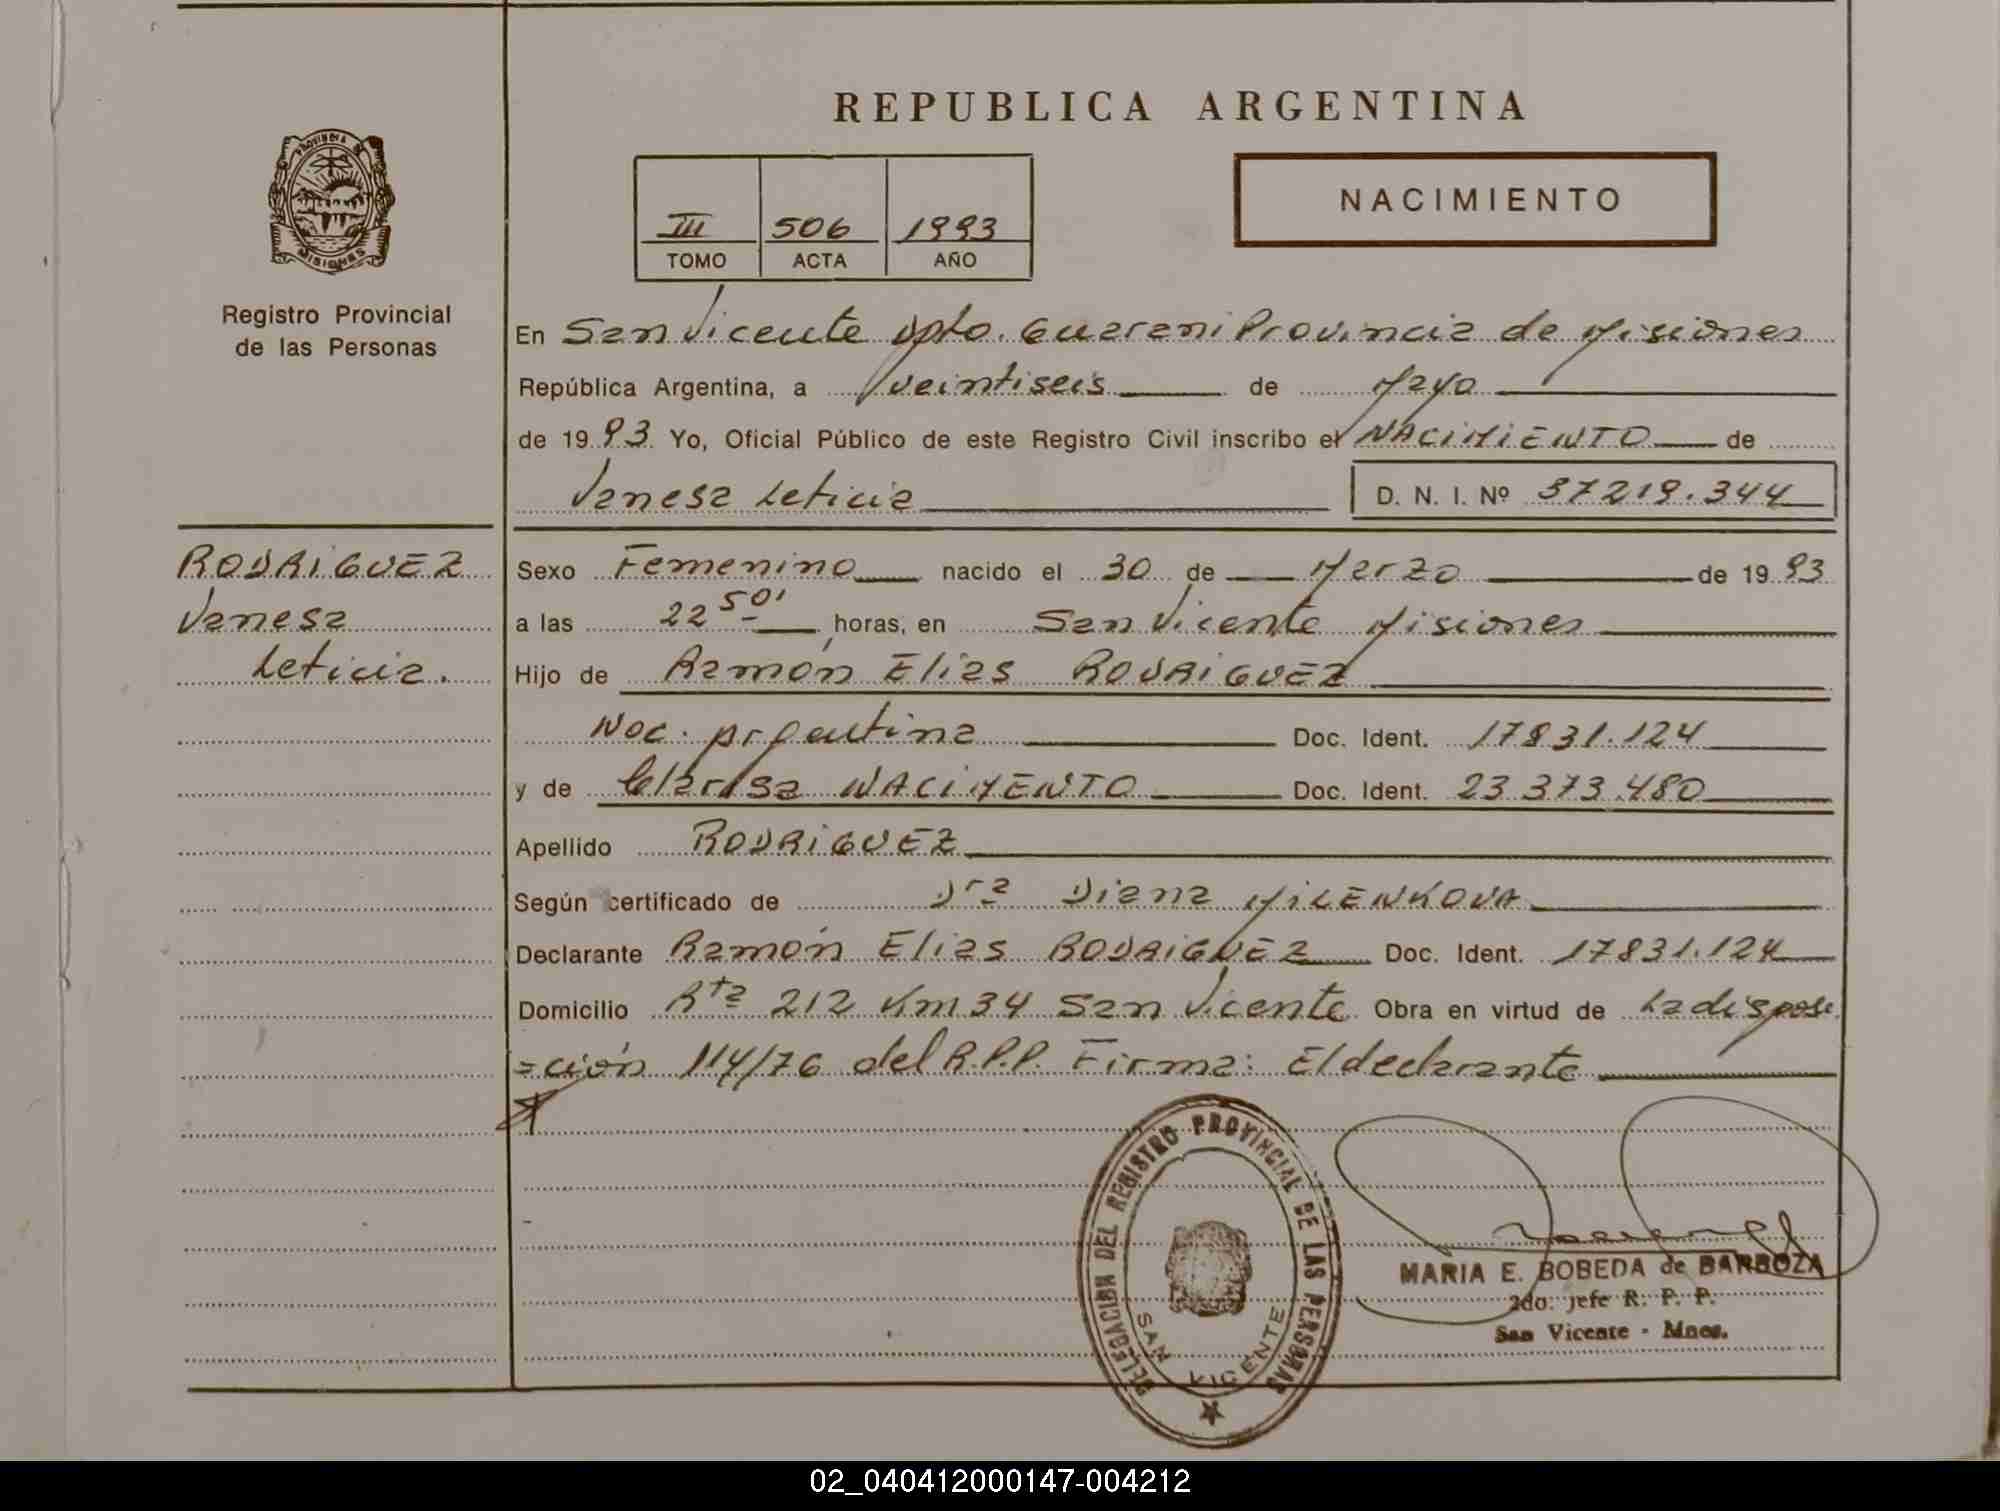 REPUBLICA ARGENTINA
PROVINCIA DE MISIONES
NACIMIENTO
III 506 1993
TOMO ACTA AÑO
Registro Provincial
de las Personas
En San Vicente Dpto. Guarani Provincia de Misiones
República Argentina, a veintiseis de Mayo
de 1993 Yo, Oficial Público de este Registro Civil inscribo el NACIMIENTO de
Vanesa Leticia D. N. I. Nº 37219.344
RODRIGUEZ
Vanesa
Leticia.
Sexo Femenino nacido el 30 de Marzo de 1993
a las 22 50' horas, en San Vicente Misiones
Hijo de Ramón Elias RODRIGUEZ
Nac. Argentina Doc. Ident. 17831.124
y de Clarisa NACIMENTO Doc. Ident. 23.373.480
Apellido RODRIGUEZ
Según certificado de Dra Diana MILENKOVA
Declarante Ramón Elias RODRIGUEZ Doc. Ident. 17831.124
Domicilio Rta 212 Km 34 San Vicente Obra en virtud de La disposi
=ción 114/76 del R.P.P. Firma: El declarante
DELEGACION DEL REGISTRO PROVINCIAL DE LAS PERSONAS
SAN VICENTE
MARIA E. BOBEDA de BARBOZA
2do. Jefe R. P. P.
San Vicente - Mnes.
02_040412000147-004212